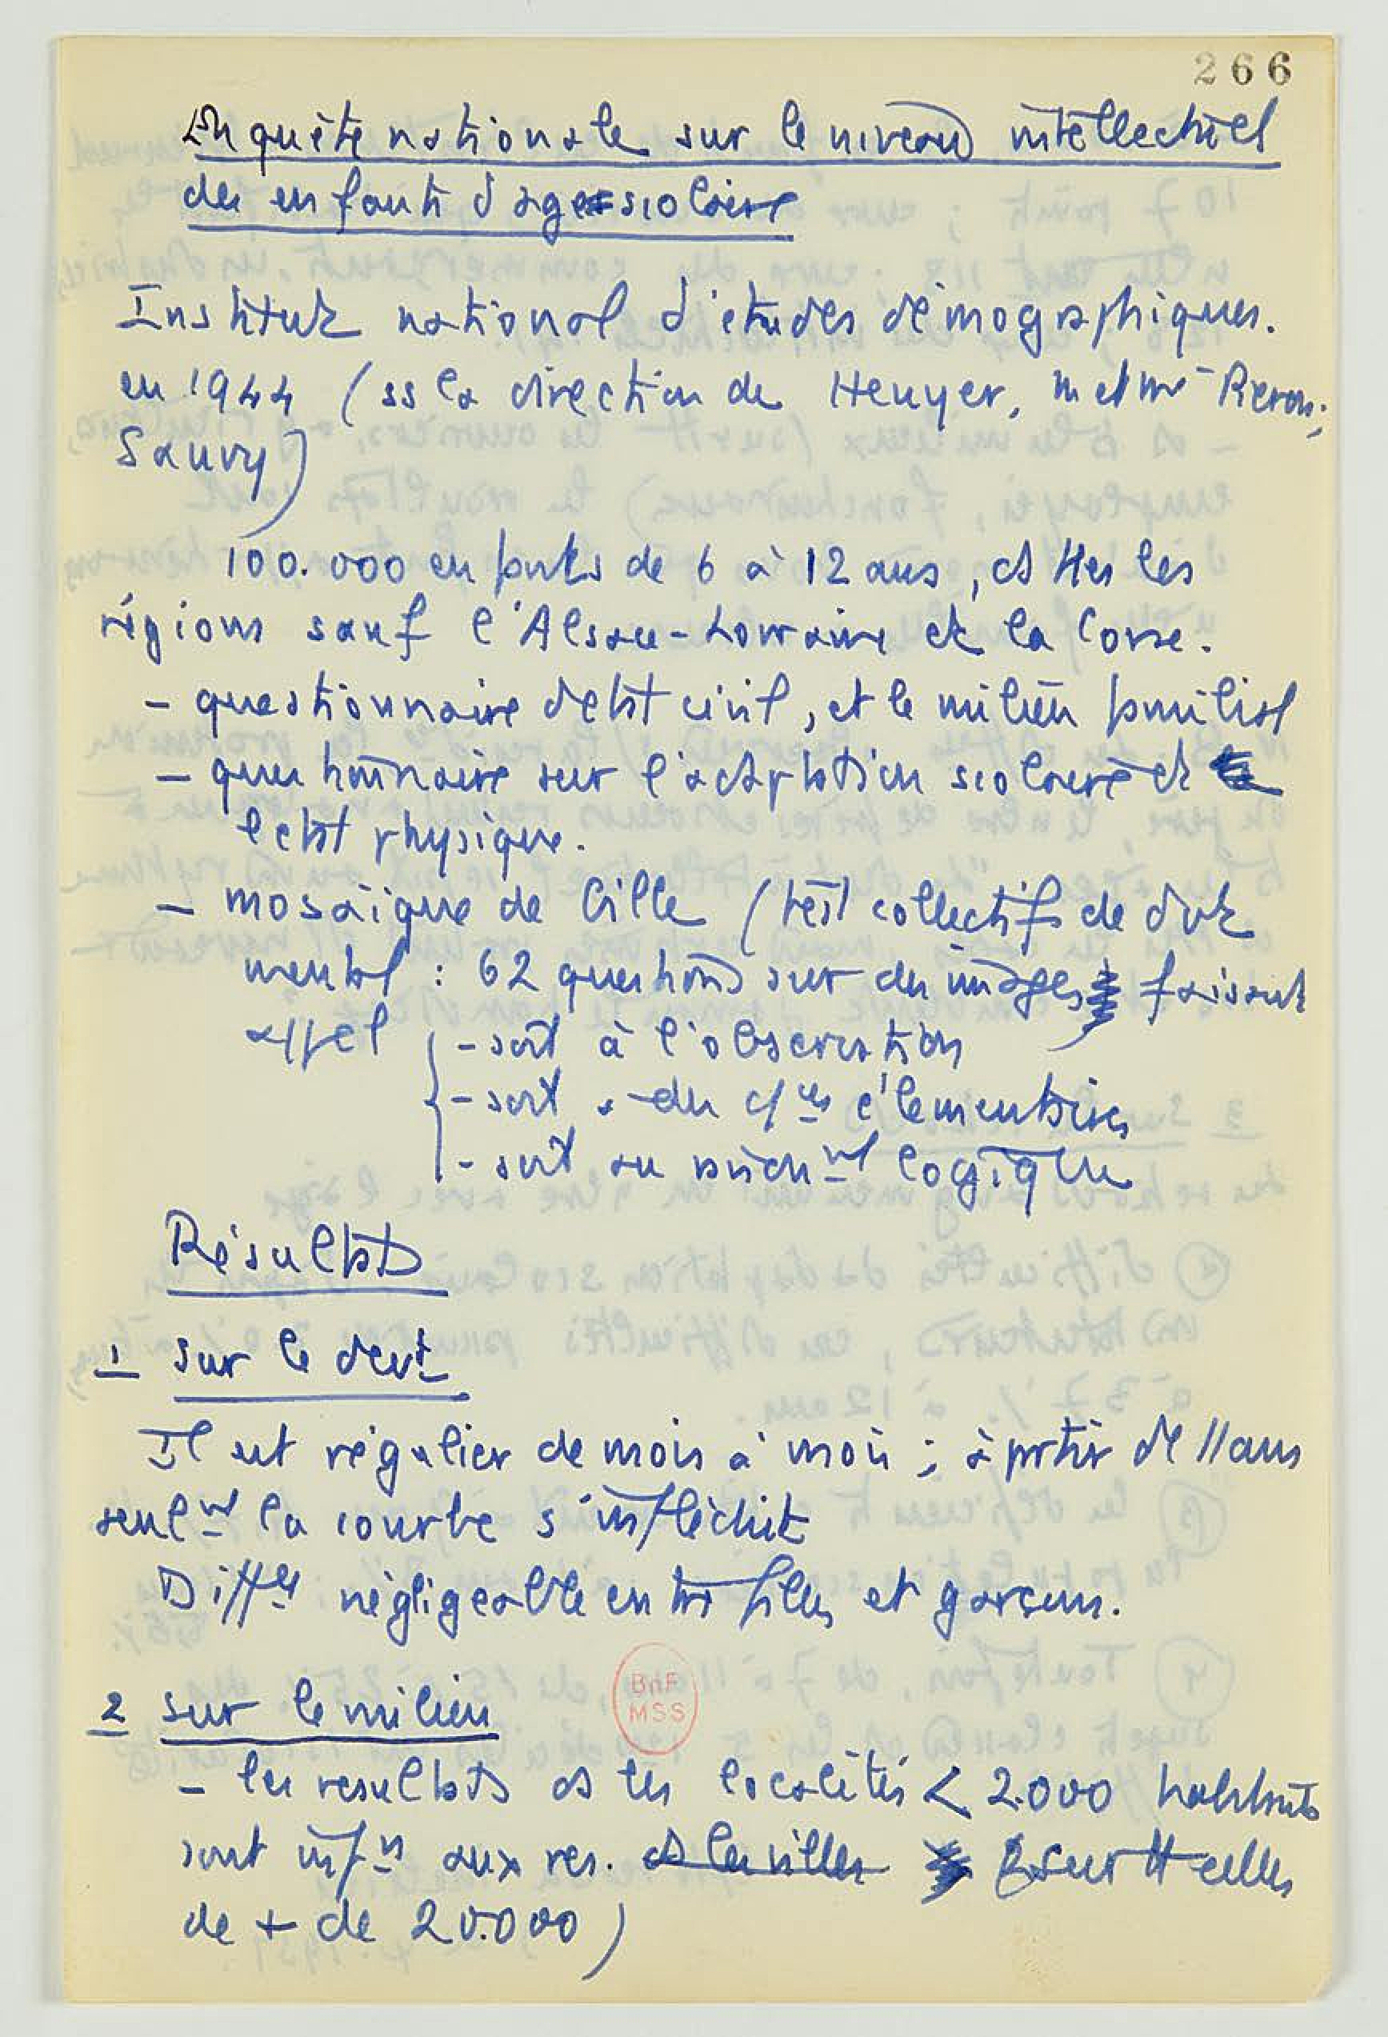 266
Enquête nationale sur le niveau intellectuel
des enfants d'age scolaire
Institut national d'études démographiques.
en 1944 (ss la direction de Heuyer, M et Me Pieron,
Sauvy)
100.000 enfants de 6 à 12 ans, ds ttes les
régions sauf l'Alsace-Lorraine et la Corse.
- questionnaire d'etat civil, et le milieu familial
- questionnaire sur l'adaptation scolaire et
l'etat physique.
- mosaïque de Gille (test collectif de dvt
mental : 62 questions sur des images faisant
appel
- soit à l'observation
- soit à des cces élémentaires
- soit au raisonnt logique
Résultats
1 sur le devt
Il est régulier de mois à mois ; à partir de 11 ans
seulnt la courbe s'infléchit
Diffces négligeable entre filles et garçons.
BnF
MSS
2 sur le milieu
- les resultats ds les localités < 2.000 habitants
sont infrs aux res. ds les villes (surtt celles
de + de 20.000)